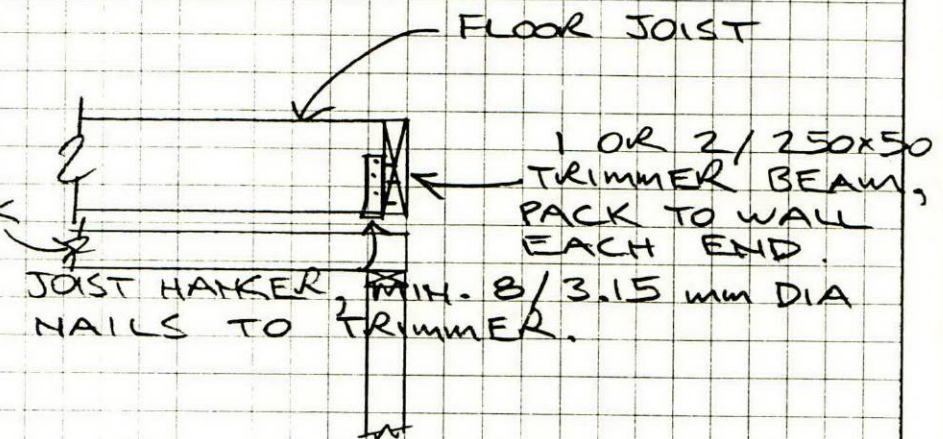 FLOOR JOIST
1 OR 2/250x50
TRIMMER BEAM,
PACK TO WALL
EACH END.
JOIST HANGER, MIN. 8/3.15 mm DIA
NAILS TO TRIMMER.